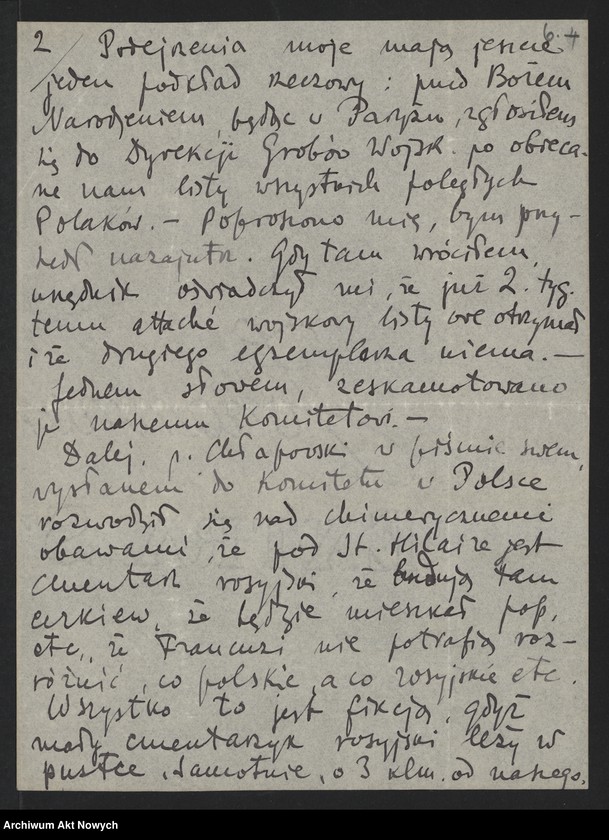 2 Podejrzenia moje mają jeszcze
jeden podkład rzeczowy: przed Bożem
Narodzeniem, będąc w Paryżu, zgłosiłem
się do Dyrekcji Grobów Wojsk. po obieca-
ne nam listy wszystkich poległych
Polaków. — Poproszono mię, bym przy-
szedł nazajutrz. Gdy tam wróciłem,
urzędnik oświadczył mi, że już 2. tyg.
temu attaché wojskowy listy owe otrzymał
i że drugiego egzemplarza niema. —
Jednem słowem, zeskamotowano
je naszemu Komitetowi. —
Dalej. p. Chłapowski w piśmie swem,
wysłanem do Komitetu w Polsce
rozwodził się nad chimerycznemi
obawami, że pod St. Hilaire jest
cmentarz rosyjski, że budują tam
cerkiew, że będzie mieszkał pop,
etc., że Francuzi nie potrafią roz-
różnić, co polskie, a co rosyjskie etc.
Wszystko to jest fikcją, gdyż
mały cmentarzyk rosyjski leży w
pustce, samotnie, o 3 klm. od naszego,
Archiwum Akt Nowych